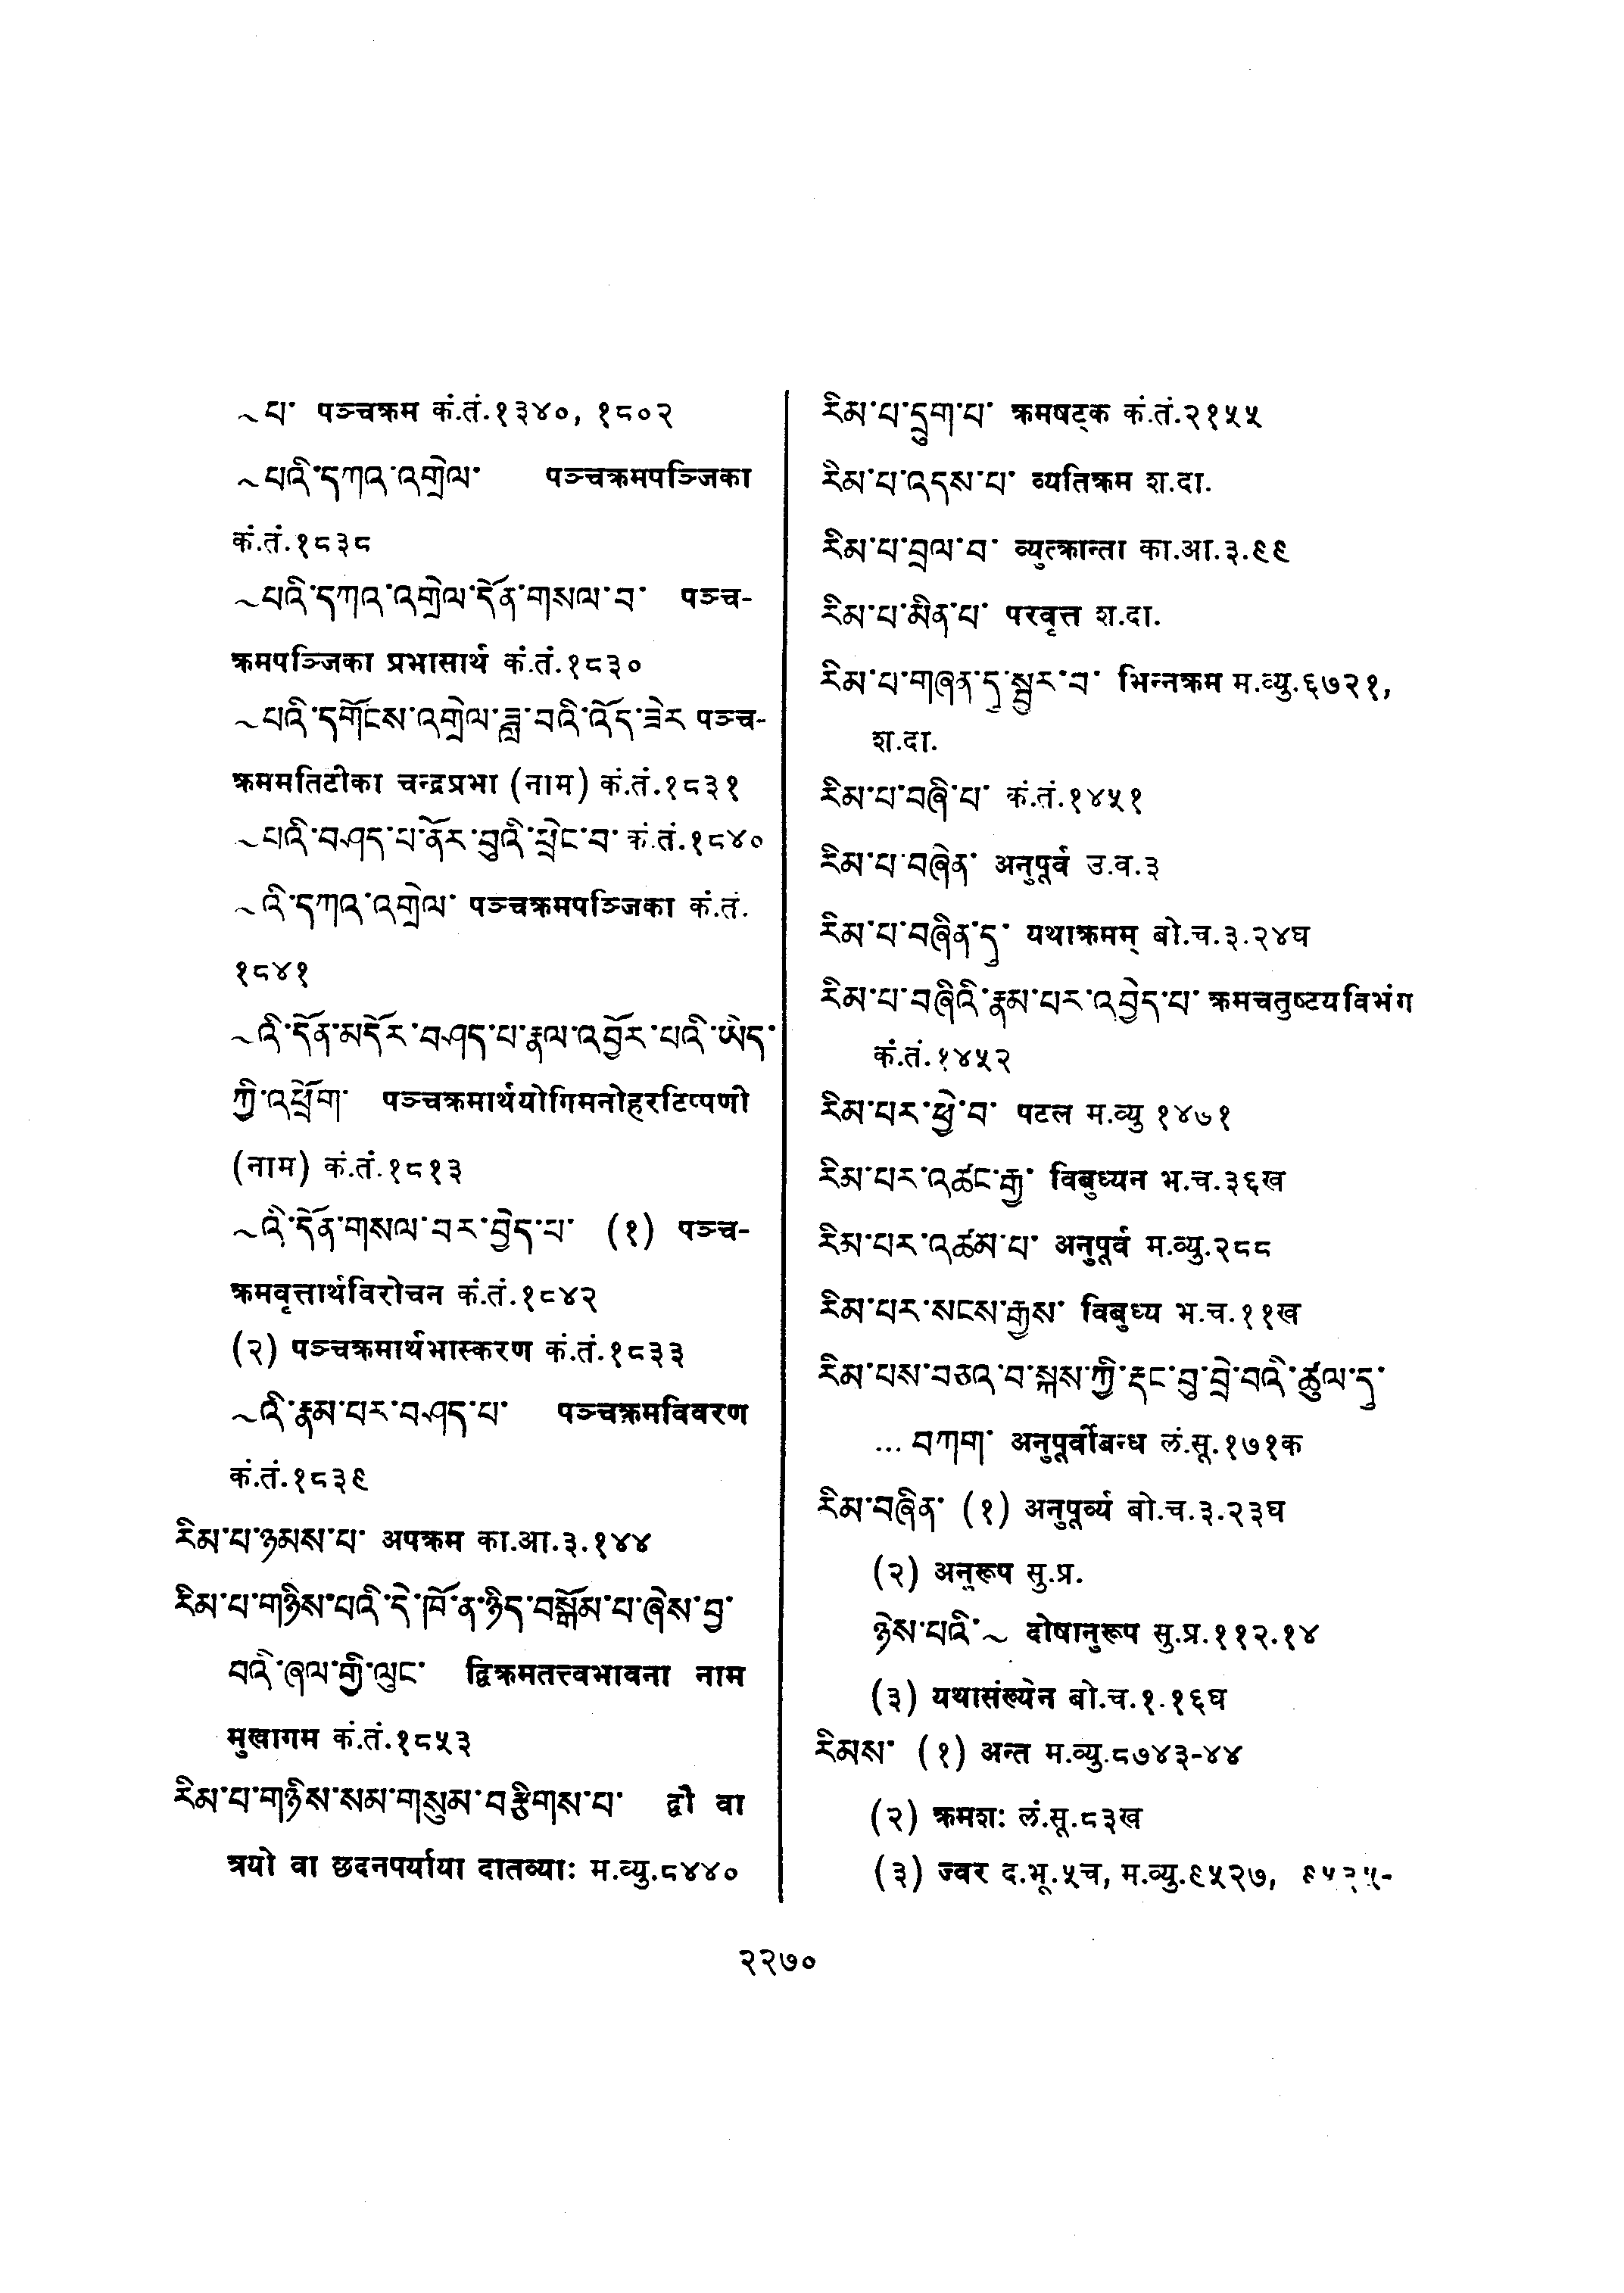 ~པ་ पञ्चक्रम कं.तं.१३४०, १८०२
~པའི་དཀའ་འགྲེལ་ पञ्चक्रमपञ्जिका
कं.तं.१८३८
~པའི་དཀའ་འགྲེལ་དོན་གསལ་བ་ पञ्च-
क्रमपञ्जिका प्रभासार्थ कं.तं.१८३०
~པའི་དགོངས་འགྲེལ་ཟླ་བའི་འོད་ཟེར पञ्च-
क्रममतिटीका चन्द्रप्रभा (नाम) कं.तं.१८३१
~པའི་བཤད་པ་ནོར་བུའི་ཕྲེང་བ་ कं.तं.१८४०
~འི་དཀའ་འགྲེལ་ पञ्चक्रमपञ्जिका कं.तं.
१८४१
~འི་དོན་མདོར་བཤད་པ་རྣལ་འབྱོར་པའི་ཡིད་
ཀྱི་འཕྲོག་ पञ्चक्रमार्थयोगिमनोहरटिप्पणी
(नाम) कं.तं.१८१३
~འི་དོན་གསལ་བར་བྱེད་པ་ (१) पञ्च-
क्रमवृत्तार्थविरोचन कं.तं.१८४२
(२) पञ्चक्रमार्थभास्करण कं.तं.१८३३
~འི་རྣམ་པར་བཤད་པ་ पञ्चक्रमविवरण
कं.तं.१८३९
རིམ་པ་ཉམས་པ་ अपक्रम का.आ.३.१४४
རིམ་པ་གཉིས་པའི་དེ་ཁོ་ན་ཉིད་བསྒོམ་པ་ཞེས་བྱ་
བའི་ཞལ་གྱི་ལུང་ द्विक्रमतत्त्वभावना नाम
मुखागम कं.तं.१८५३
རིམ་པ་གཉིས་སམ་གསུམ་བརྩིགས་པ་ द्वौ वा
त्रयो वा छदनपर्याया दातव्याः म.व्यु.८४४०
རིམ་པ་དྲུག་པ་ क्रमषट्क कं.तं.२१५५
རིམ་པ་འདས་པ་ व्यतिक्रम श.दा.
རིམ་པ་བྲལ་བ་ व्युत्क्रान्ता का.आ.३.९९
རིམ་པ་མིན་པ་ परवृत्त श.दा.
རིམ་པ་གཞན་དུ་སྦྱར་བ་ भिन्नक्रम म.व्यु.६७२१,
श.दा.
རིམ་པ་བཞི་པ་ कं.तं.१४५१
རིམ་པ་བཞིན་ अनुपूर्व उ.व.३
རིམ་པ་བཞིན་དུ་ यथाक्रमम् बो.च.३.२४घ
རིམ་པ་བཞིའི་རྣམ་པར་འབྱེད་པ་ क्रमचतुष्टयविभंग
कं.तं.१४५२
རིམ་པར་ཕྱེ་བ་ पटल म.व्यु १४७१
རིམ་པར་འཚང་རྒྱ་ विबुध्यन भ.च.३६ख
རིམ་པར་འཚམ་པ་ अनुपूर्व म.व्यु.२८८
རིམ་པར་སངས་རྒྱས་ विबुध्य भ.च.११ख
རིམ་པས་བཅའ་བ་སྐས་ཀྱི་རྡང་བུ་བྲེ་བའི་ཚུལ་དུ་
... བཀག་ अनुपूर्वोबन्ध लं.सू.१७१क
རིམ་བཞིན་ (१) अनुपूर्व्य बो.च.३.२३घ
(२) अनुरूप सु.प्र.
ཉེས་པའི་~ दोषानुरूप सु.प्र.११२.१४
(३) यथासंख्येन बो.च.१.१६घ
རིམས་ (१) अन्त म.व्यु.८७४३-४४
(२) क्रमशः लं.सू.८३ख
(३) ज्वर द.भू.५च, म.व्यु.९५२७,
२२७०